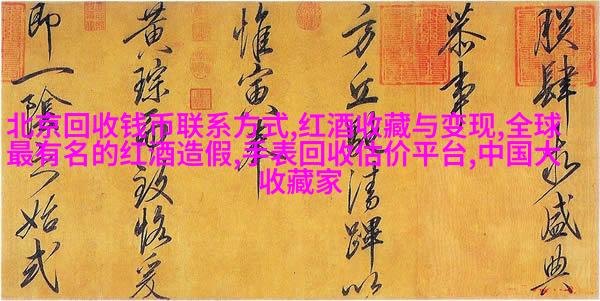 北京回收钱币联系方式,红酒收藏与变现,全球
最有名的红酒造假,手表回收估价平台,中国大
收藏家
朕肆盛典
恭事
方丘清蹕以
惟寅
黄琮致恪爰
即一陰始式